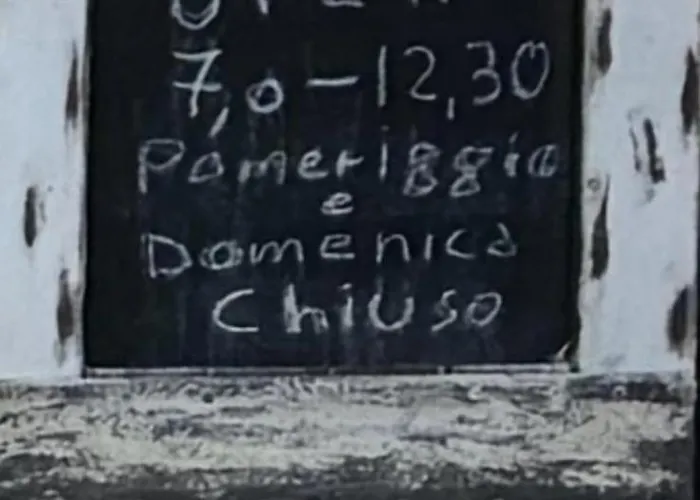 7,0 - 12,30
Pomeriggio
e
Domenica
Chiuso